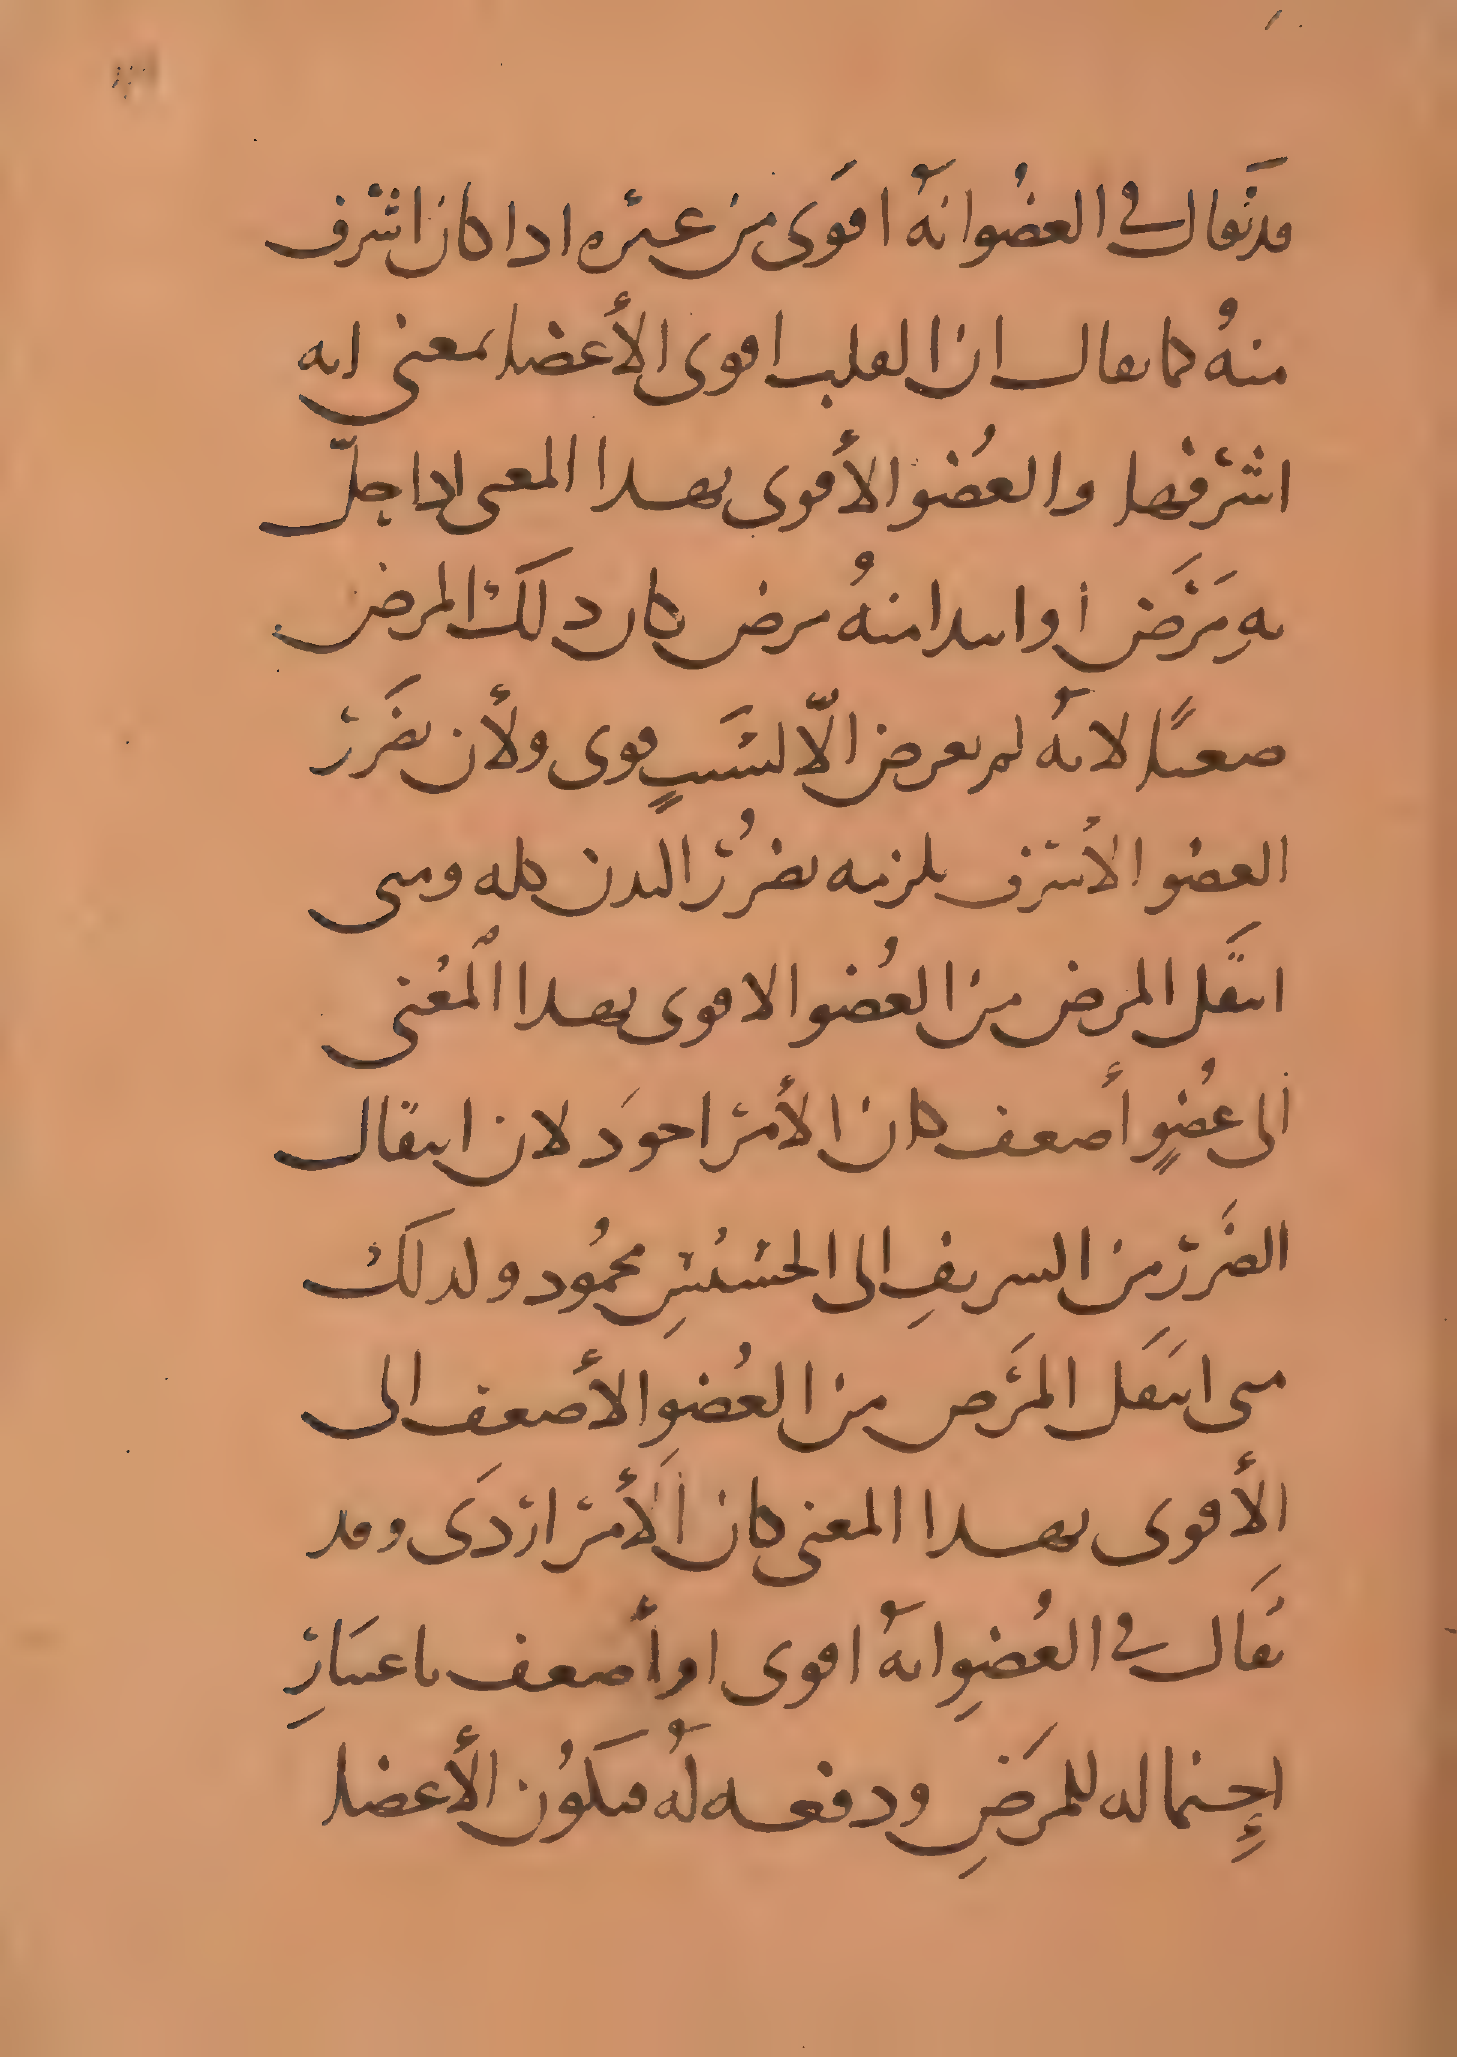 قد يقال في العضو انه اقوى من غيره اذا كان اشرف
منه كما يقال ان القلب اقوى الأعضا بمعنى انه
اشرفها والعضو الأقوى بهذا المعنى اذا حل
به مرض أو ابتدا منه مرض كان ذلك المرض
صعبًا لانه لم يعرض الّا لسببٍ قوى ولأن تضرر
العضو الأشرف يلزمه تضرر البدن كله ومتى
انتقل المرض من العضو الاقوى بهذا المعنى
الى عضوٍ أضعف كان الأمر اجود لان انتقال
الضرر من الشريف الى الخسيس محمود ولذلك
متى انتقل المرض من العضو الأضعف الى
الأقوى بهذا المعنى كان الأمر اردى وقد
يقال في العضو انه اقوى او أضعف باعتبار
إحتماله للمرض ودفعه له فيكون الأعضا